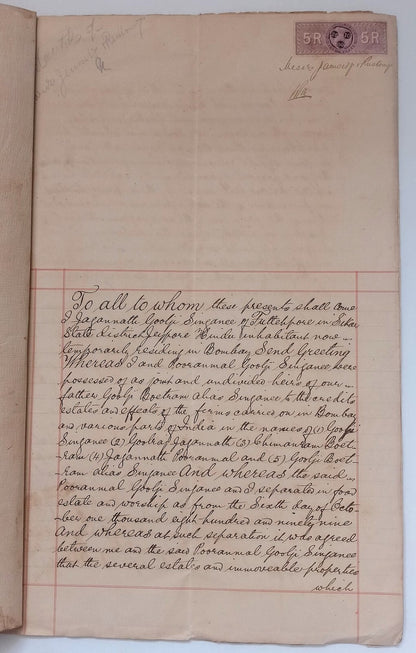 5R 5R
Messrs Jamsetji & Rustomji
To all to whom these presents shall come
I Jagannath Goolji Singanee of Futtehpore in Sikar
State district Jeypore Hindu inhabitant now
temporarily residing in Bombay Send Greeting
Whereas I and Pooranmal Goolji Singanee were
possessed of as joint and undivided heirs of our
father Goolji Boetram alias Singanee to the credits
estates and effects of the firms carried on in Bombay
and various parts of India in the names of (1) Goolji
Singanee (2) Goolraj Jagannath (3) Chimanram Boet-
ram (4) Jagannath Pooranmal and (5) Goolji Boet-
ram alias Singanee And whereas the said
Pooranmal Goolji Singanee and I separated in food
estate and worship as from the Sixth day of Octo-
ber one thousand eight hundred and ninety nine
And whereas at such separation it was agreed
between me and the said Pooranmal Goolji Singanee
that the several estates and immoveable properties
which